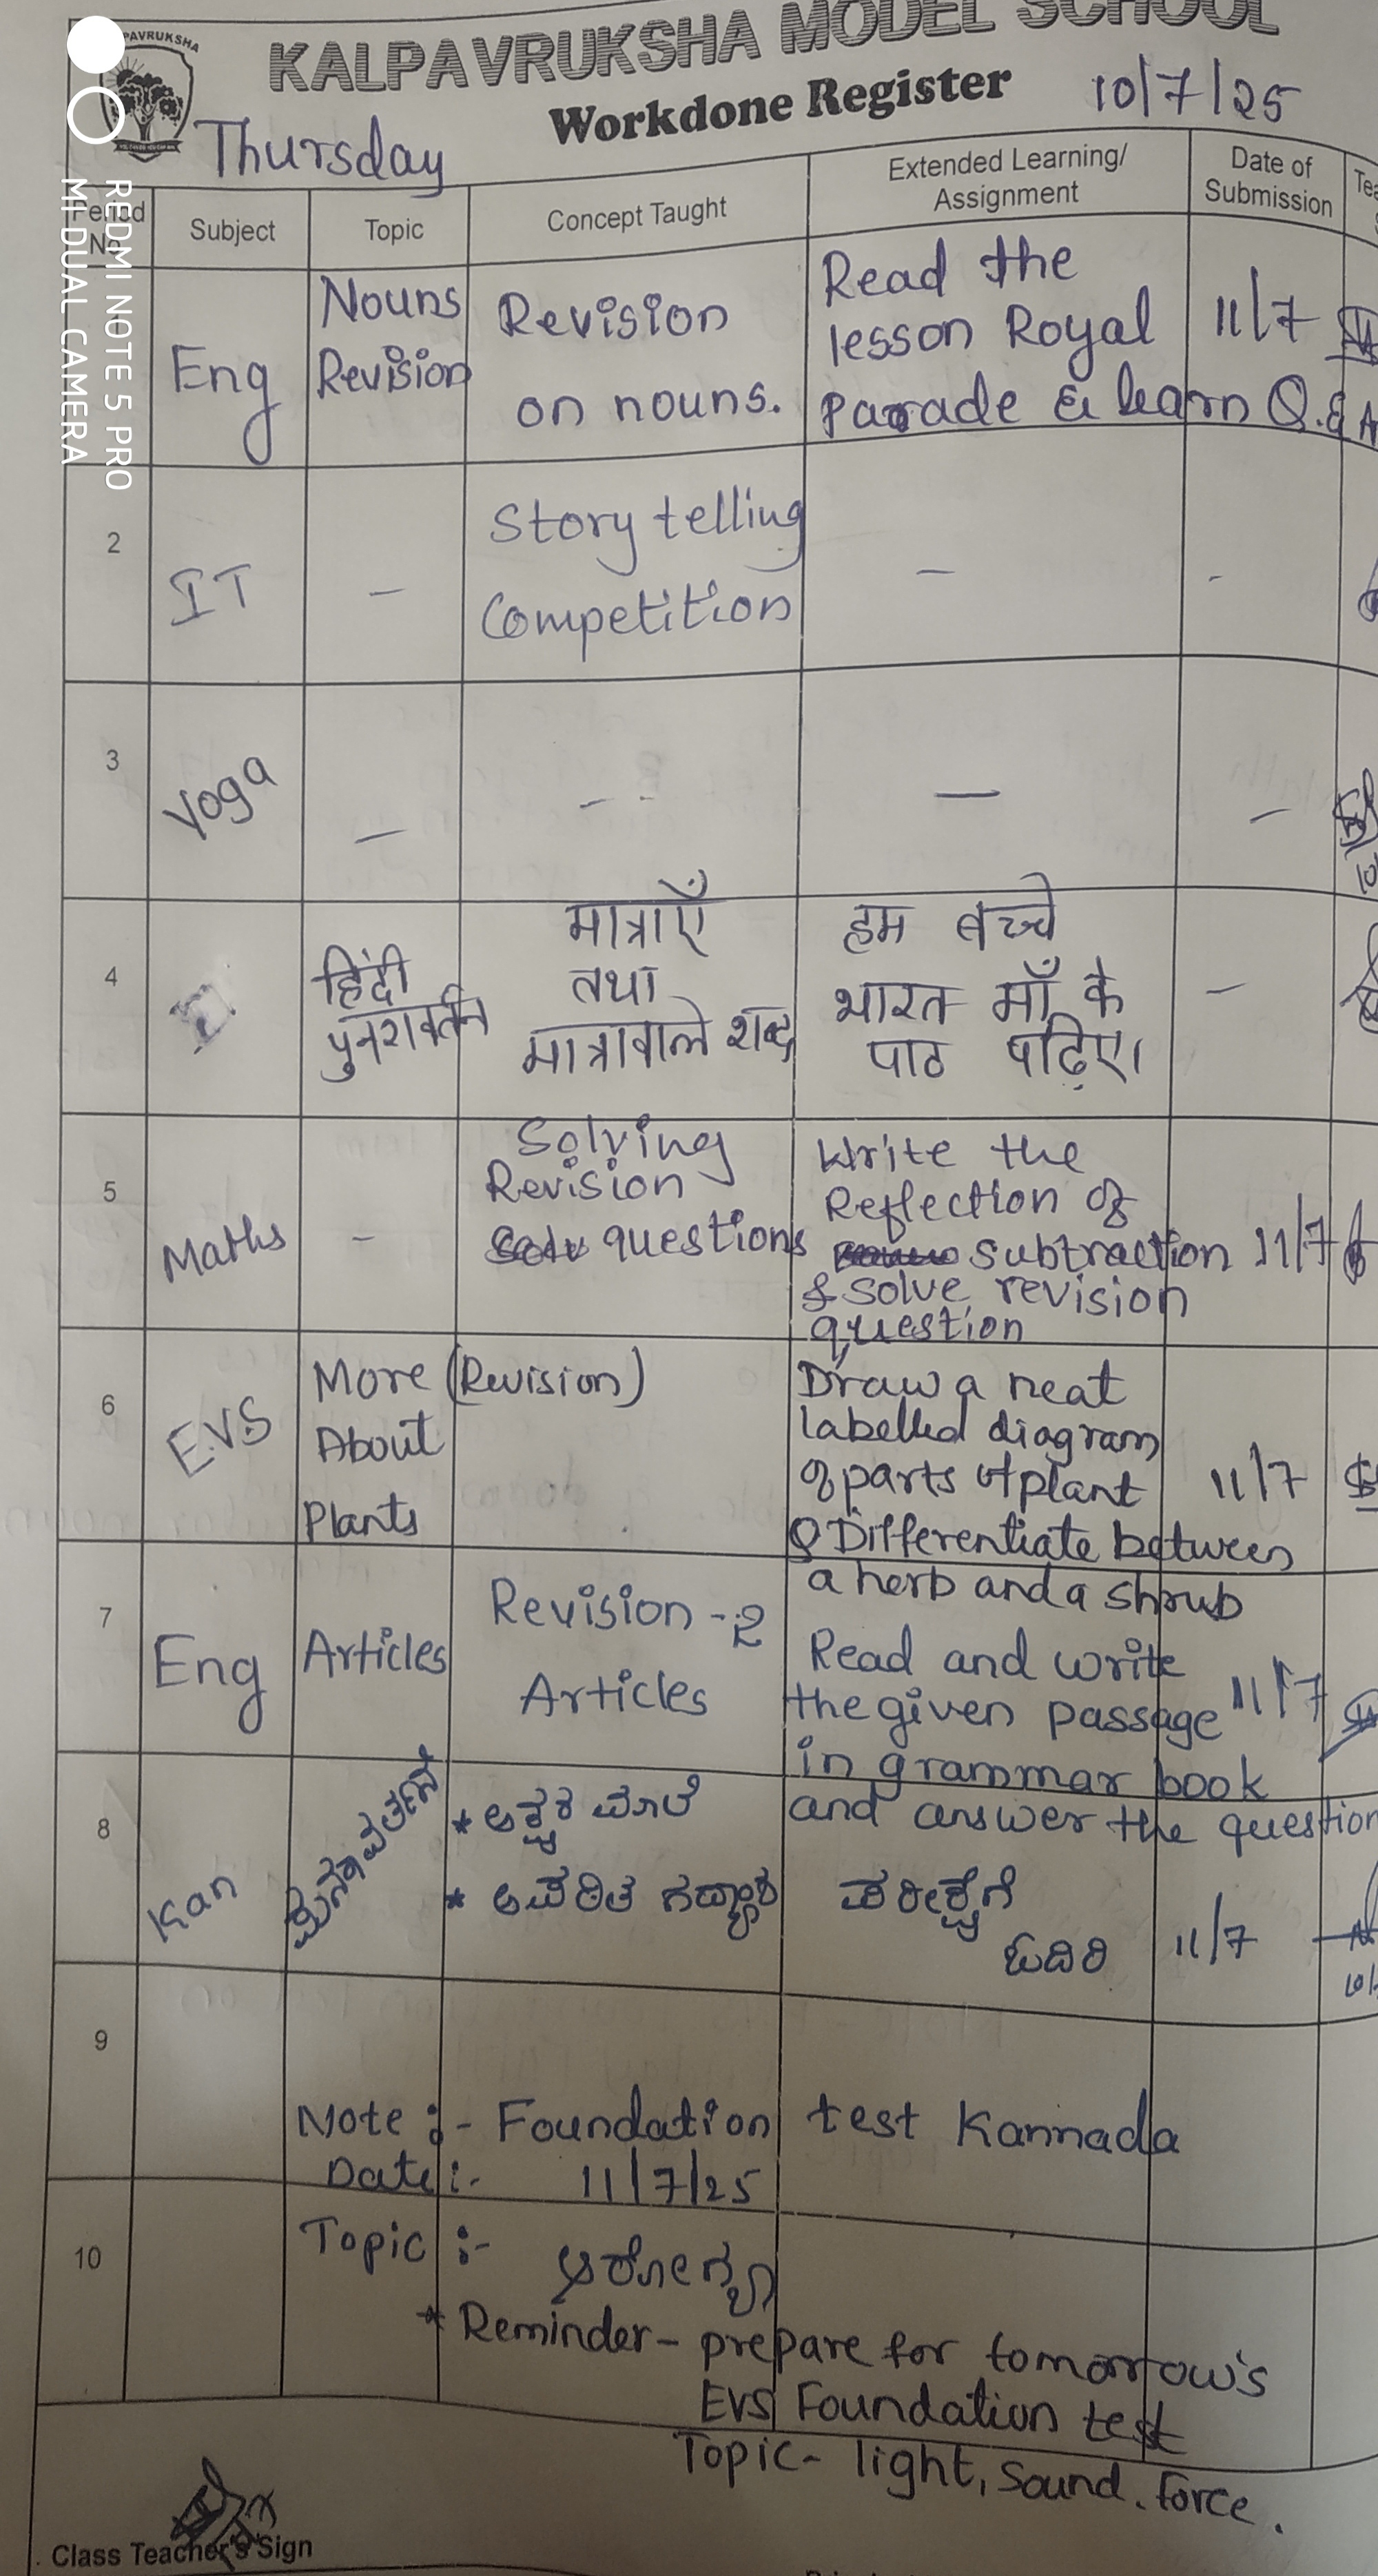 PAVRUKSHA
KALPAVRUKSHA MODEL SCHOOL
Workdone Register
10/7/25
Thursday
REDMI NOTE 5 PRO
MI DUAL CAMERA
Period No
Subject
Topic
Concept Taught
Extended Learning/
Assignment
Date of
Submission
Eng
Nouns
Revision
Revision
on nouns.
Read the
lesson Royal
Parade & learn Q.&A
11/7
2
IT
-
Story telling
Competition
-
-
3
Yoga
-
- -
-
-
4
हिंदी
पुनरावर्तन
मात्राएँ
तथा
मात्रावाले शब्द
हम बच्चे
भारत माँ के
पाठ पढ़िए।
-
5
Maths
-
Solving
Revision
questions
Write the
Reflection of
subtraction
& solve revision
question
11/7
6
E.V.S
More (Revision)
About
Plants
Draw a neat
labelled diagram
of parts of plant
Q Differentiate between
a herb and a shrub
11/7
7
Eng
Articles
Revision - 2
Articles
Read and write
the given passage
in grammar book
and answer the question
11/7
8
Kan
ಪುನರಾವರ್ತನೆ
* ಅಕ್ಷರ ಮಾಲೆ
* ಅಪಠಿತ ಗದ್ಯಾಂಶ
ಪರೀಕ್ಷೆಗೆ
ಓದಿರಿ
11/7
9
Note :- Foundation test Kannada
Date :- 11/7/25
10
Topic :- ಆರೋಗ್ಯ
* Reminder - prepare for tomorrow's
EVS Foundation test
Topic - light, sound. force.
Class Teacher's Sign